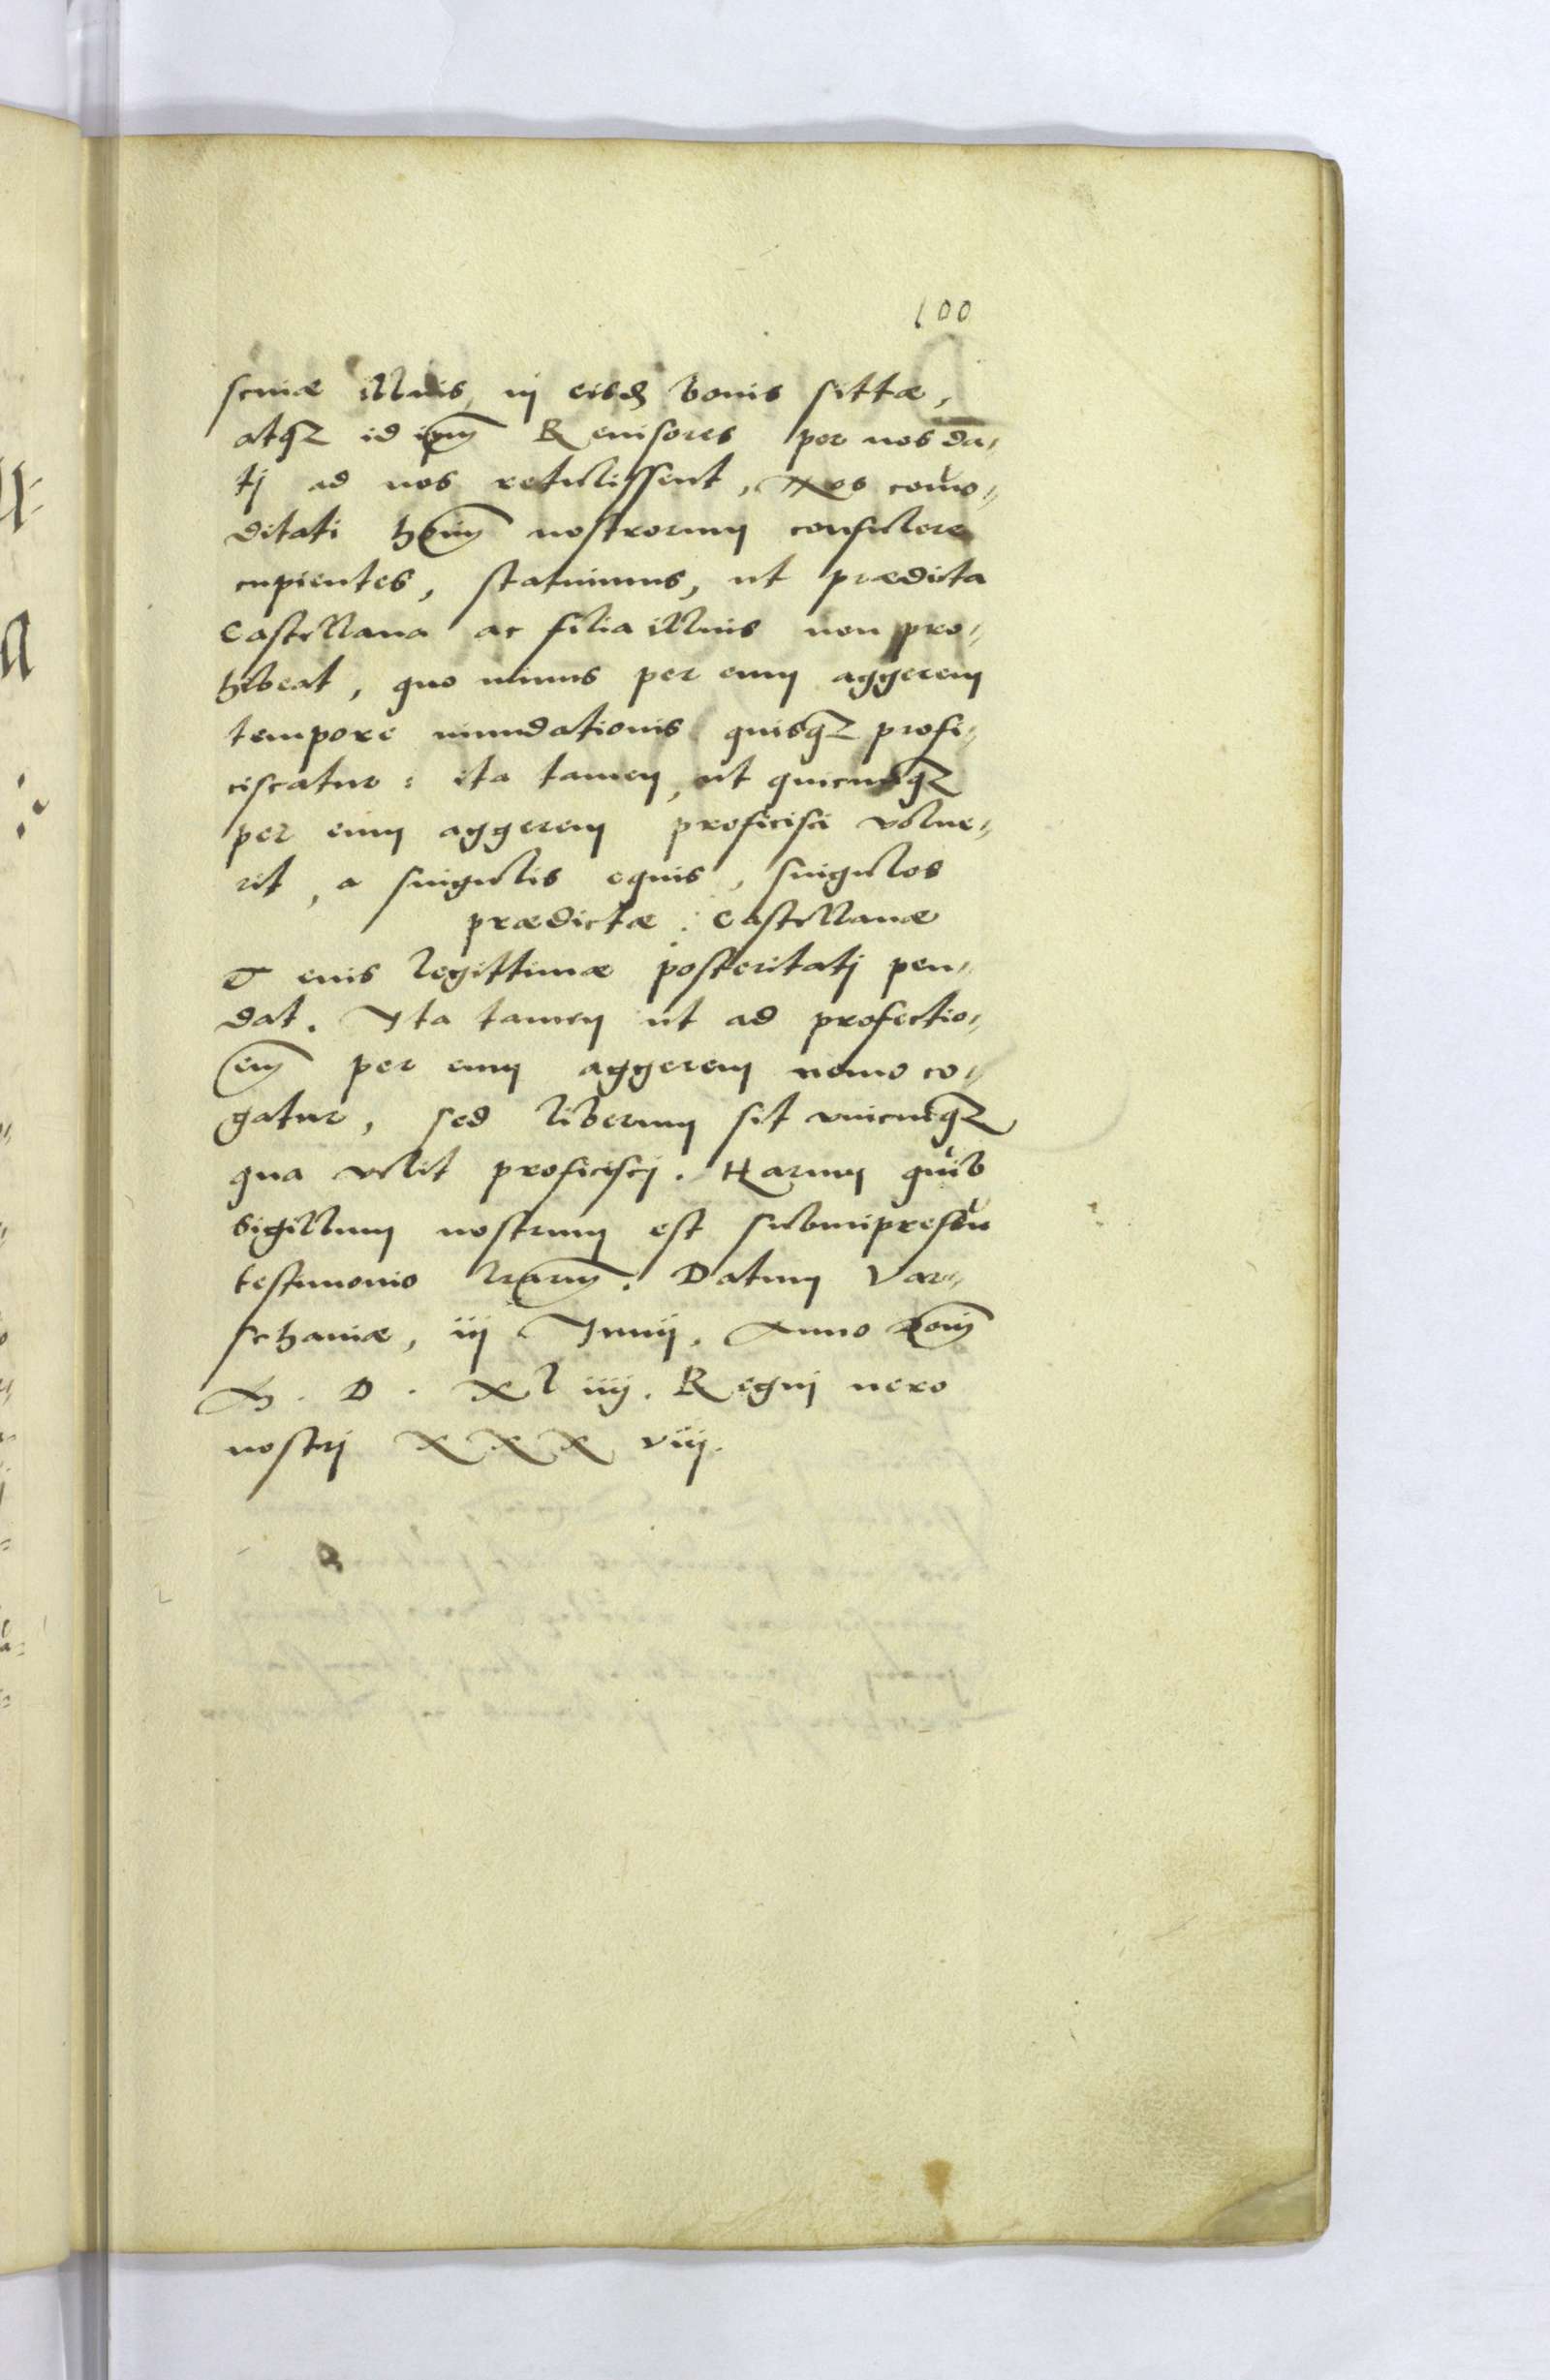 100
scinæ illius, in eisdẽ bonis sittæ,
atq3 id ipm̃ Revisores per nos da¬
tj ad nos retulissent, Nos com̃o¬
ditati hoim̃ nostrorum consulere
cupientes, statuimus, ut prædicta
Castellana ac filia illius non pro¬
hibeat, quo minus per eum aggerem
tempore inundationis quisq3 profi¬
ciscatur: ita tamen, ut quicunq3
per eum aggerem proficisci volue¬
rit, a singulis equis, singulos
prædictæ Castellanæ
& eius legittimæ posteritatj pen¬
dat. Ita tamen ut ad profectio¬
em̃ per eum aggerem nemo co¬
gatur, sed liberum sit unicuiq3
qua velit proficiscj. Harum quib
Sigillum nostrum est subimpressũ
testimonio lrarum̃. Datum Var¬
schaviæ, iij Junij. Anno Domj
M. D. XL iiij. Regni vero
nostrj XXX viij.